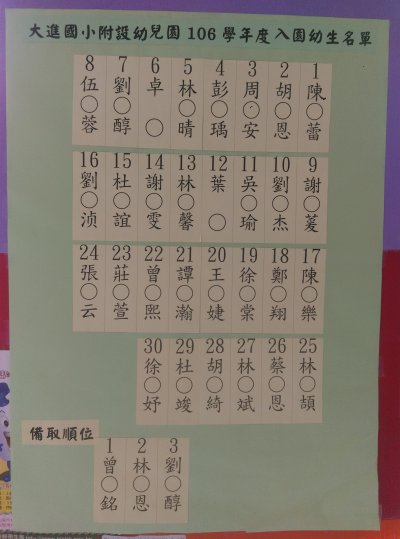 大進國小附設幼兒園 106 學年度 入園幼生名單
1 陳○蕾
2 胡○恩
3 周○安
4 彭○瑀
5 林○晴
6 卓○
7 劉○醇
8 伍○蓉
9 謝○菱
10 劉○杰
11 吳○瑜
12 葉○
13 林○馨
14 謝○雯
15 杜○誼
16 劉○浈
17 陳○樂
18 鄭○翔
19 徐○棠
20 王○婕
21 譚○瀚
22 曾○熙
23 莊○萱
24 張○云
25 林○頡
26 蔡○恩
27 林○斌
28 胡○綺
29 杜○竣
30 徐○妤
備取順位
1 曾○銘
2 林○恩
3 劉○醇